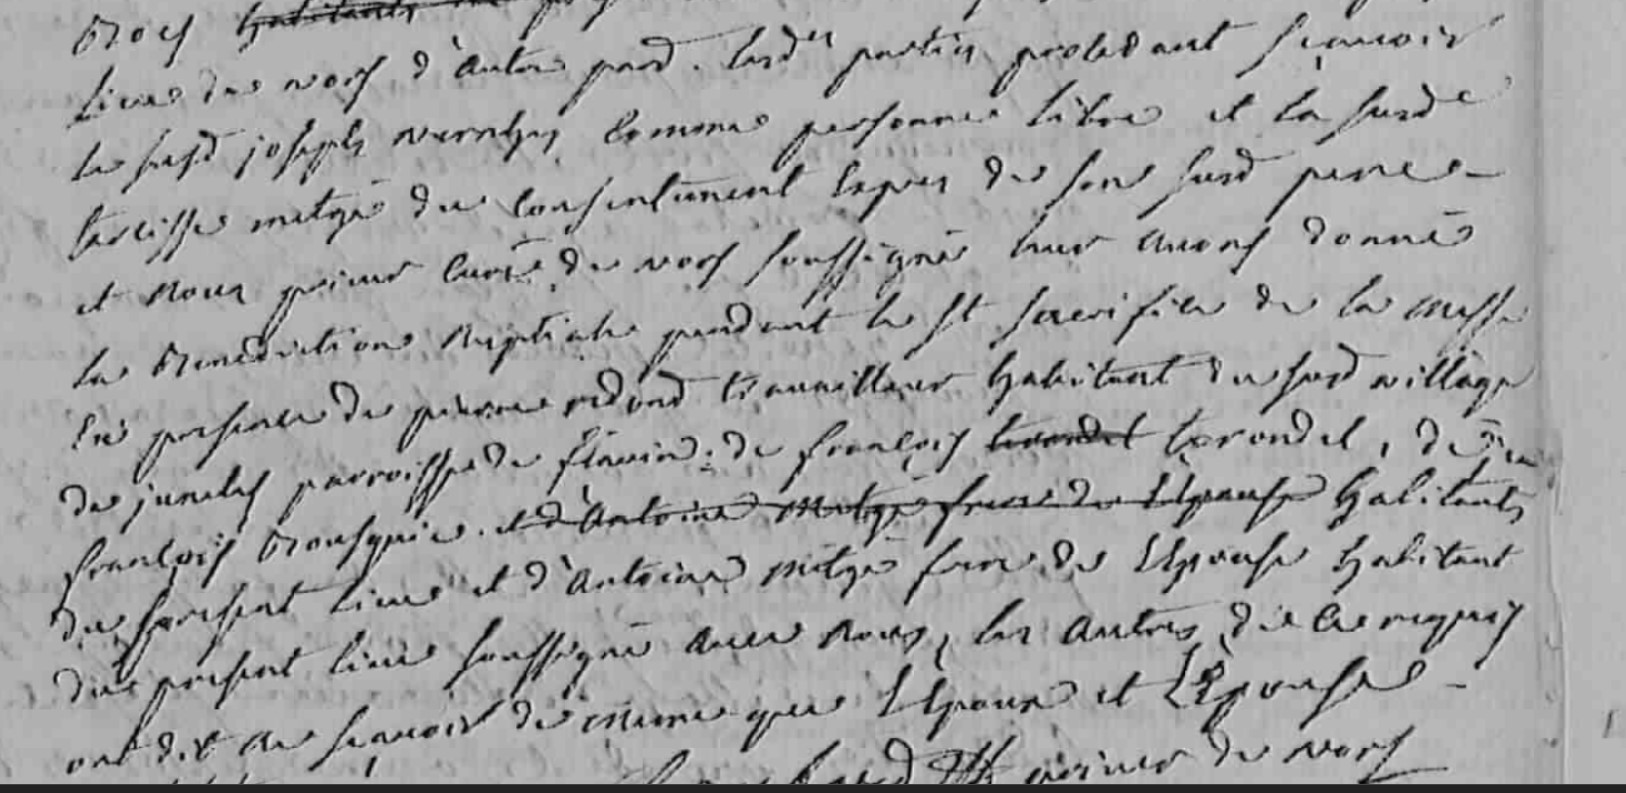 Brocq ~~habitants~~
lieu de vors d'autre part. lesd es parties procedant sçavoir
le susd joseph vernhes comme personne libre et la susd e
tarcisse metge du consentement expres de son susd pere
et nous prieur curé de vors soussigné leur avons donné
la benediction nuptiale pendant le st sacrifice de la messe
en presence de pierre redond travailleur habitant du susd village
de junelz parroisse de flavin; de françois ~~terondel~~ terondel, de
françois Bousquie. ~~et d'antoine metge frere de l'epouse~~ habitants
du present lieu et d'antoine metge frere de l'epouse habitant
du present lieu soussigné avec nous, les autres de ce requis
ont dit ne sçavoir de meme que l'epoux et l'epouse
prieur de vors